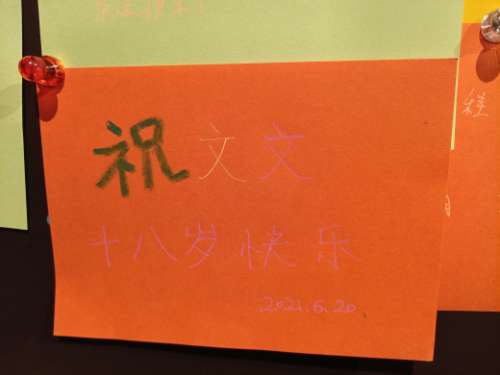 祝文文
十八岁快乐
2021.6.20